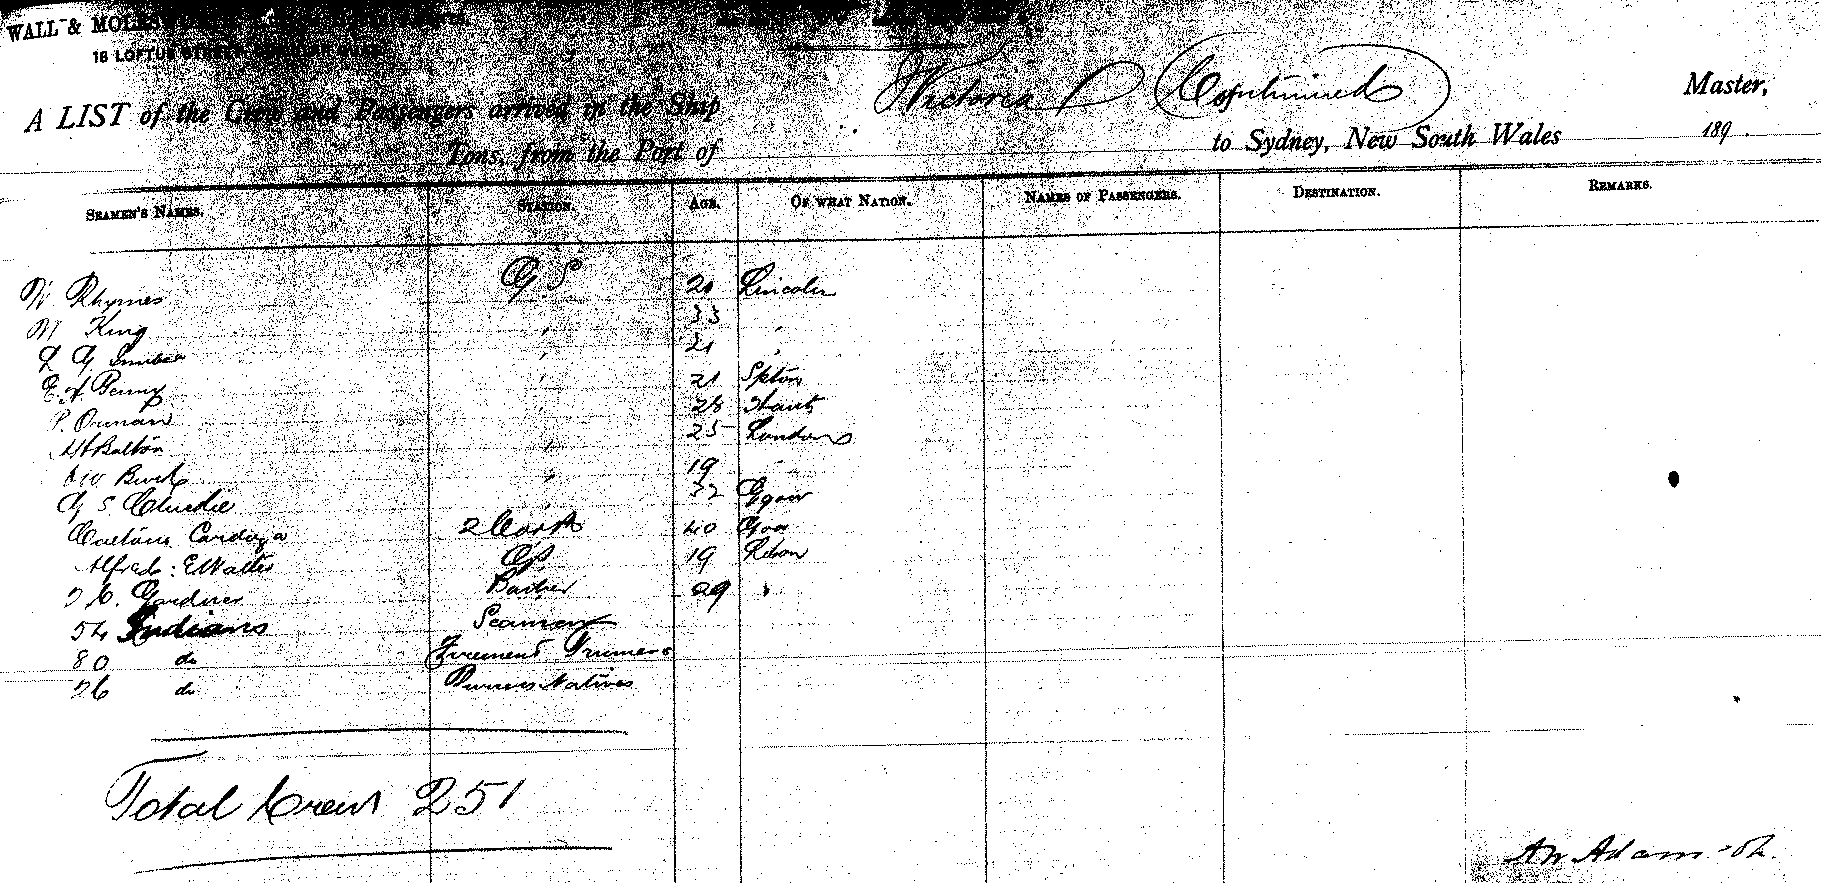 WALL & MOLES
16 LOFTUS STREET
A LIST of the Crew and Passengers arrived in the Ship Victoria (Continued) Master,
Tons, from the Port of to Sydney, New South Wales 189 .
SEAMEN'S NAMES. STATION. AGE. OF WHAT NATION. NAMES OF PASSENGERS. DESTINATION. REMARKS.
W Rhymes G S 20 Lincoln
M King " 33 "
G. " 21 "
E. A. Penny " 21 Spton
P. Osman 28 Hants
Bolton " 25 London
" 19 "
G S Clunkie 32 Ggow
Caetano Cardoza 2 Cook 40 Goa
Alfred E Walter GS 19 Ldon
Gardiner Barber 29 "
54 Indians Seamen
80 do Firemens Trimers
26 do Pursers Natives
Total Crew 251
A W Adamson